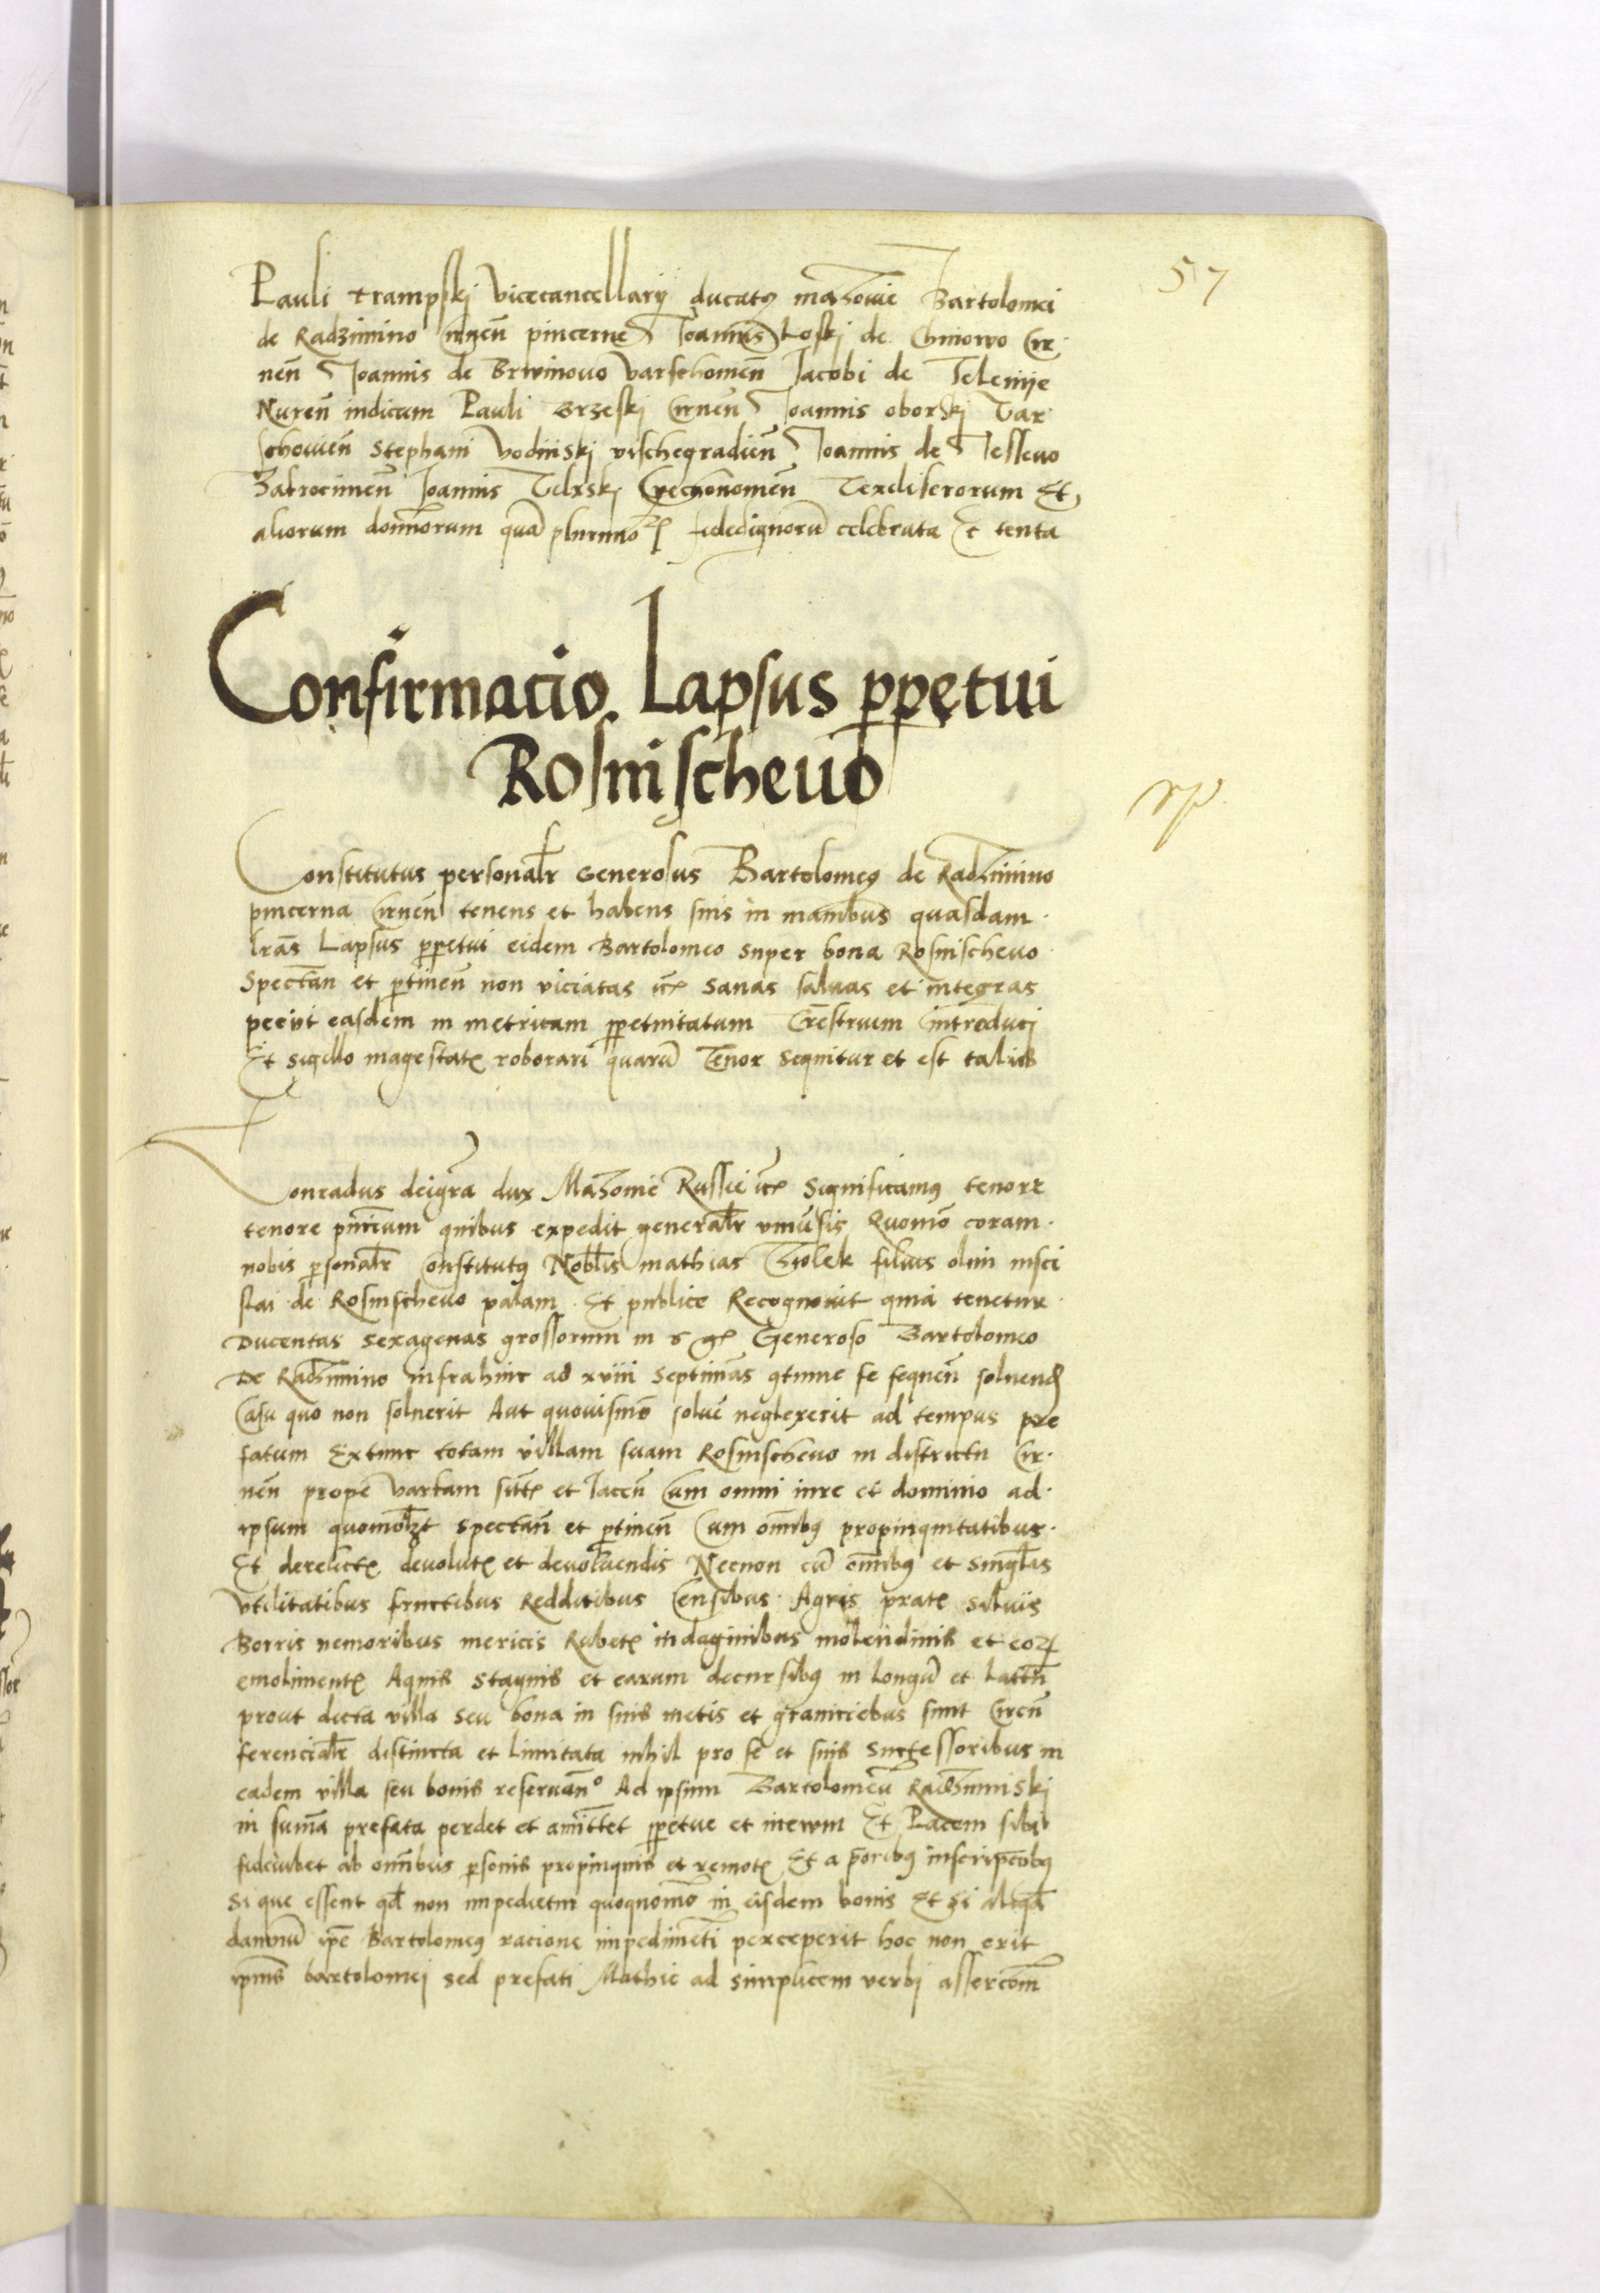 57
Pauli trampskj vicecancellarij ducatus mazovie Bartolomei
de Radzimino Cirnen̄ pincerne Joannis Loskj de Chinowo Cir
nen̄ Joannis de Brwinovo varschowien̄ Jacobi de Telemije
Nuren̄ iudicum Pauli Brzeskj Cirnen̄ Joannis oborskj Var
schowien̄ Stephani vodinskj vischegradien̄ Joannis de Jesseuo
Zakrocimen̄ Joannis Cechonomen̄ Texdiferorum Et
aliorum domīorum quā plurimoꝝ fidedignorū celebrata et tenta
Confirmacio Lapsus ꝑpetui
Rosnischeuo
Constitutus personalr̄ Generosus Bartolomeꝯ de Radzimino
pincerna Cirnen̄ tenens et habens suis in manibus quasdam
lrās Lapsus ꝑpetui eidem Bartolomeo super bona Rosnischeuo
Spectan̄ et ꝑtinen̄ non viciatas etc̄ sanas saluas et integras
peciit easdem in metricam ꝑpetuitatum Trestruem introduci
Et sigillo magestatꝭ roborari quarū Tenor sequitur et est talis
Conradus deigrā dux Mazovie Russie etc̄ Significamꝯ tenore
tenore pn̄cium quibus expedit generalr̄ vniu̅sis Quomō coram
nobis ꝑsonalr̄ Constitutꝯ Nobl̄is mathias Tholek filius olim msci
slai de Rosnischeuo palam Et publice Recognouit quia tenetur
Ducentas sexagenas grossorum in Generoso Bartolomeo
De Radzimino infrahinc ad xviii septimās ꝯtinue se sequen̄ soluendꝭ
Casu quo non soluerit Aut quouismō soluē neglexerit ad tempus pre
fatum Extunc totam villam suam Rosnischeuo in districtu Cir
nen̄ prope vartam sitꝭ et Jacen̄ Cum omni iure et dominio ad
ipsum quomōlꝫt spectan̄ et ꝑtinen̄ Cum om̄ibꝯ propinquitatibus
Et derelictꝭ deuolutꝭ et deuoluendis Necnon cū om̄ibꝯ et singl̄is
vtilitatibus fructibus Redditibus Censibus Agris pratꝭ siluis
Borris nemoribus mericis Rubetꝭ indaginibus molendinis et eoꝝ
emolimentꝭ Aquis stagnis et earum decursibꝯ in longū et Latū
prout dicta villa seu bona in suis metis et graniciebus sunt Circū
ferencialr̄ distincta et limitata nihil pro se et suis successoribus in
eadem villa seu bonis reseruan° Ad ipsum Bartolomeū Radzimiskj
in sum̄a prefata perdet et amittet ꝑpetue et in ewm Et Pacem sibi
fideiubet ab om̄ibus ꝑsonis propinquis et remotꝭ Et a p̄oribꝯ inscripc̄obꝯ
Si que essent qd̄ non impedietur quoquomō in eisdem bonis Et Si aliqd̄
damnū ip̄e Bartolomeꝯ racione impedimēti perceperit hoc non erit
ipius bartolomei sed prefati Mathie ad simplicem verbi assercōem̄